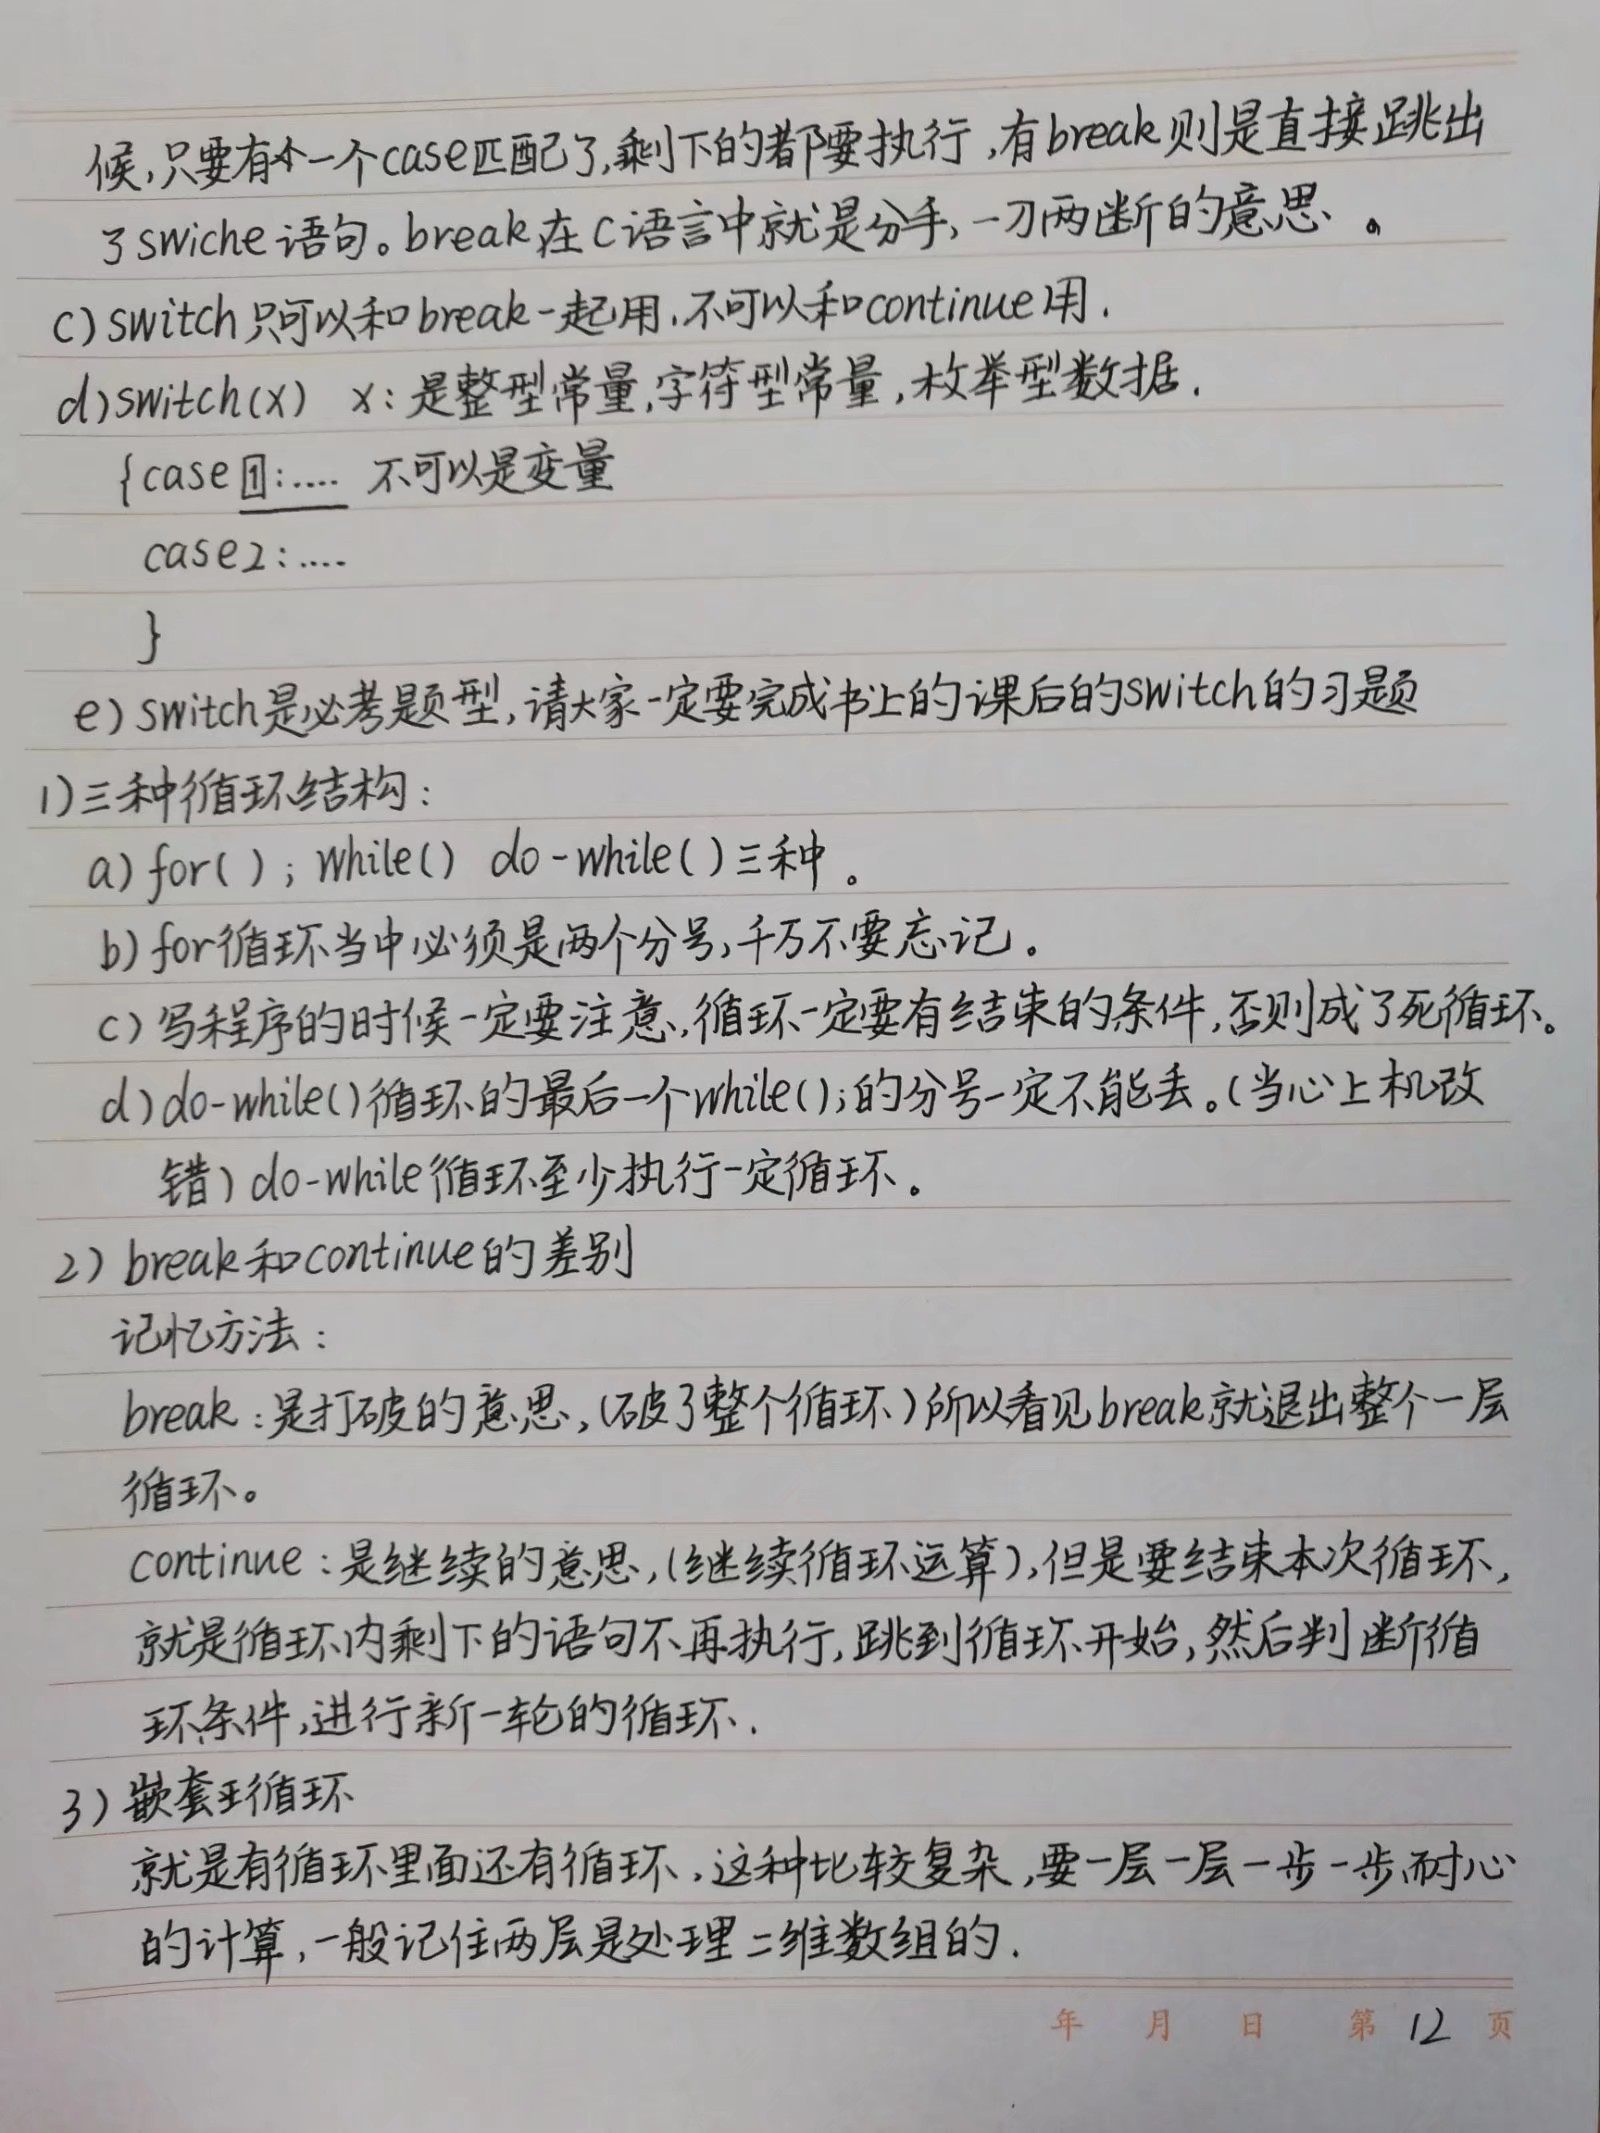 候,只要有个一个case匹配了,剩下的都要执行,有break则是直接跳出
了swiche语句。break在C语言中就是分手,一刀两断的意思。
c)switch只可以和break一起用,不可以和continue用.
d)switch(x) x:是整型常量,字符型常量,枚举型数据.
{case 1:.... 不可以是变量
case2:....
}
e)switch是必考题型,请大家一定要完成书上的课后的switch的习题
1)三种循环结构:
a)for( ); while() do-while()三种。
b)for循环当中必须是两个分号,千万不要忘记。
c)写程序的时候一定要注意,循环一定要有结束的条件,否则成了死循环。
d)do-while()循环的最后一个while();的分号一定不能丢。(当心上机改
错)do-while循环至少执行一定循环。
2)break和continue的差别
记忆方法:
break:是打破的意思,(破了整个循环)所以看见break就退出整个一层
循环。
continue:是继续的意思,(继续循环运算),但是要结束本次循环,
就是循环内剩下的语句不再执行,跳到循环开始,然后判断循
环条件,进行新一轮的循环.
3)嵌套循环
就是有循环里面还有循环,这种比较复杂,要一层一层一步一步耐心
的计算,一般记住两层是处理二维数组的.
年 月 日 第 12 页